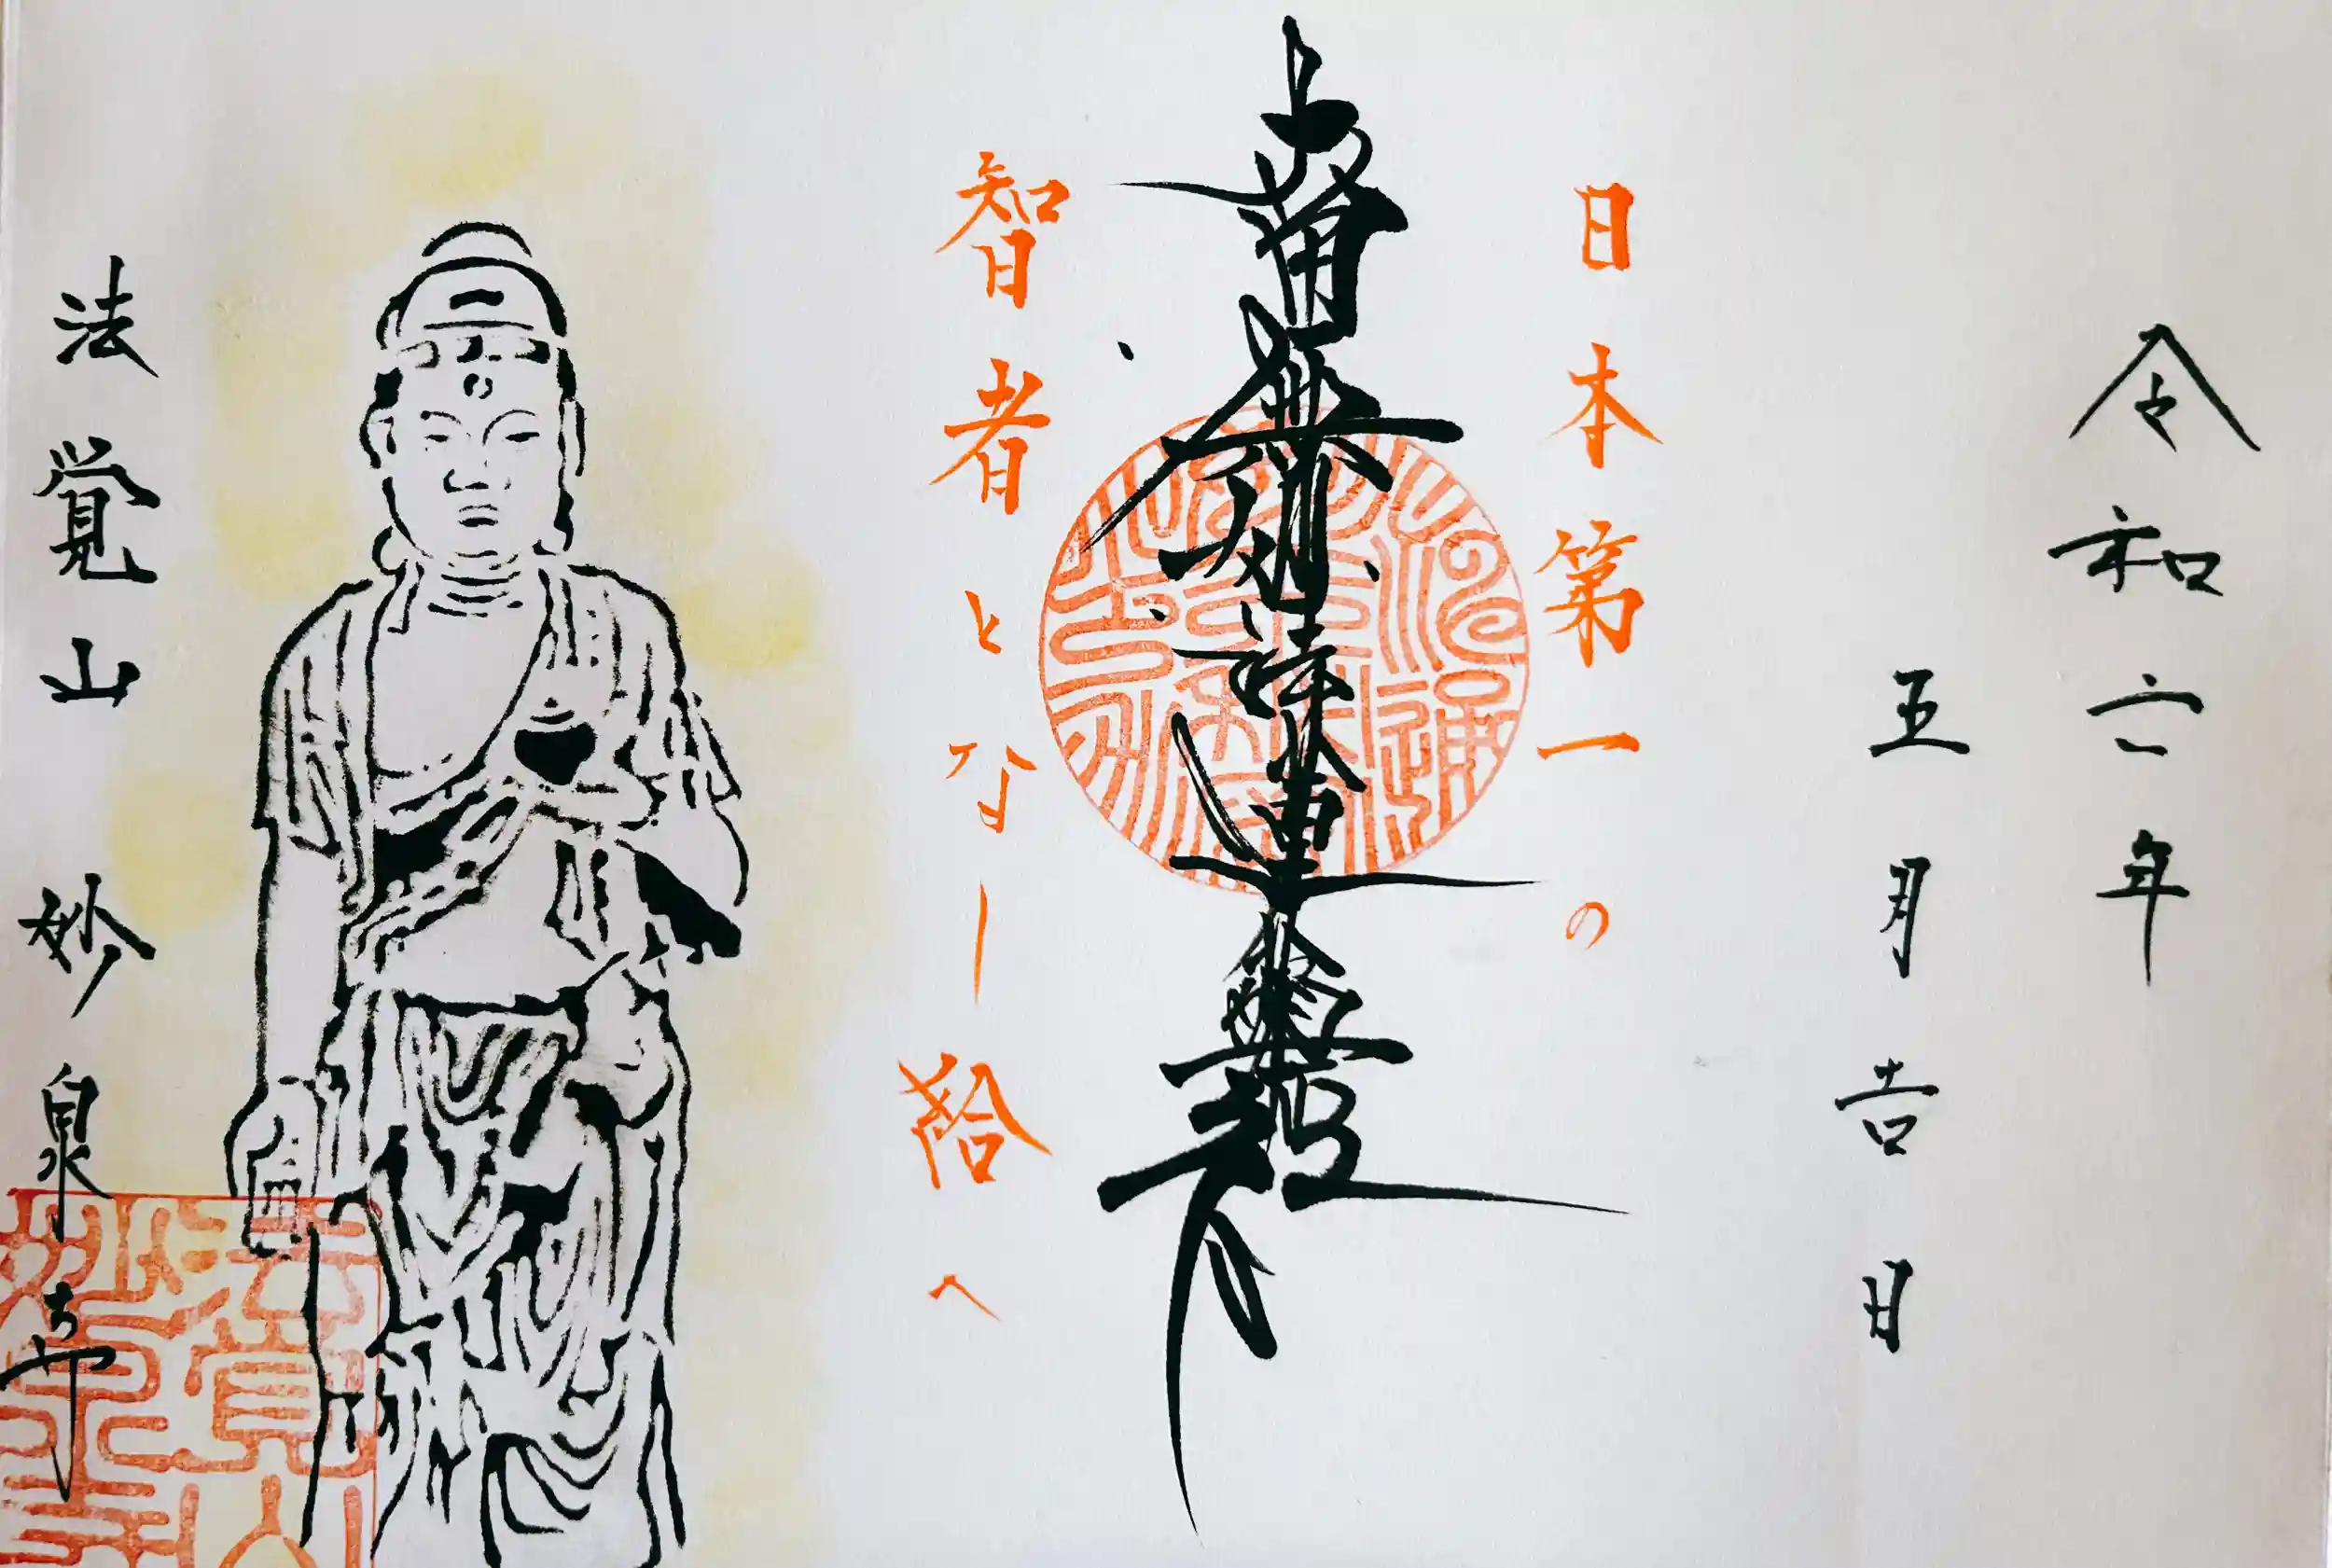 令和六年
五月吉日
日本第一の
南無妙法蓮華経
智者となし給へ
法覚山妙泉寺